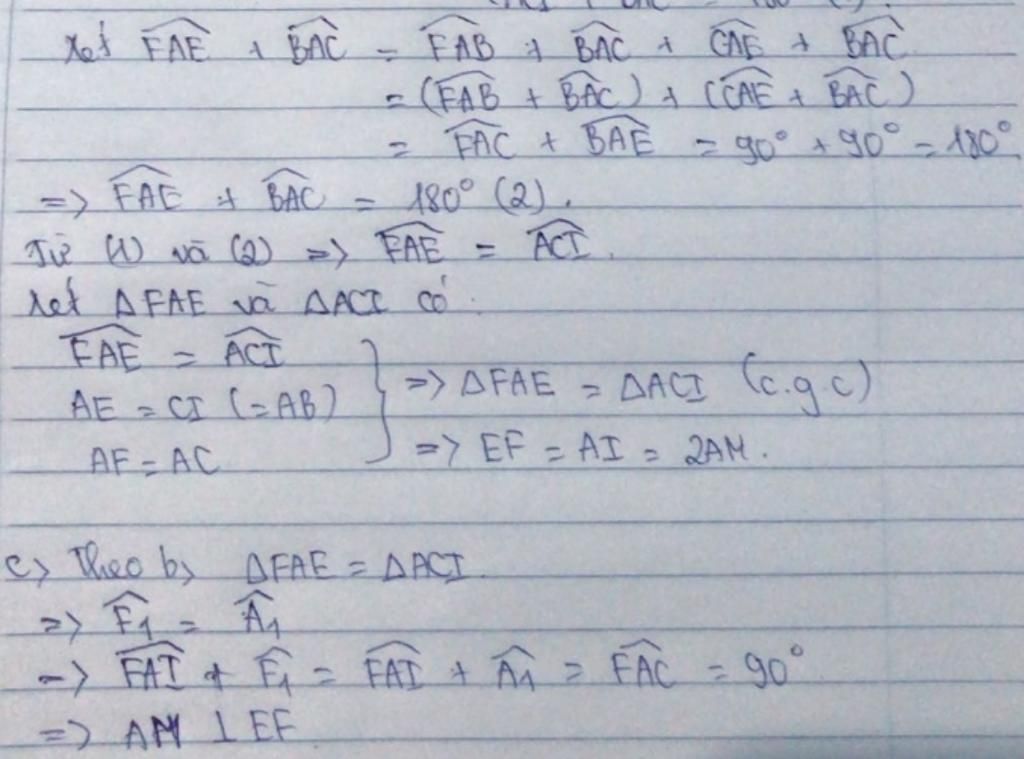 Xét FAE + BAC = FAB + BAC + CAE + BAC
= (FAB + BAC) + (CAE + BAC)
= FAC + BAE = 90° + 90° = 180°
=> FAE + BAC = 180° (2).
Từ (1) và (2) => FAE = ACI.
Xét ΔFAE và ΔACI có
FAE = ACI
AE = CI (=AB) => ΔFAE = ΔACI (c.g.c)
AF = AC => EF = AI = 2AM.
c, Theo b, ΔFAE = ΔACI.
=> F₁ = A₁
=> FAI + F₁ = FAI + A₁ = FAC = 90°
=> AM ⊥ EF